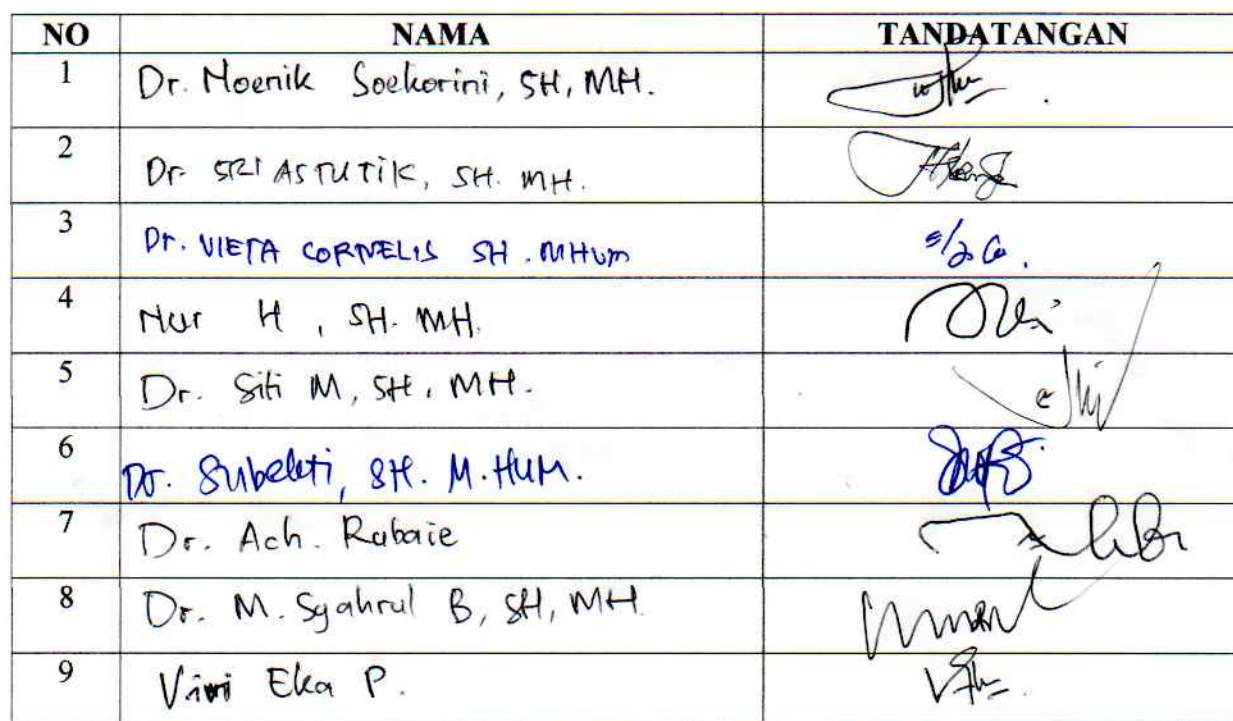 NO NAMA TANDATANGAN
1 Dr. Noenik Soekorini, SH, MH.
2 Dr. SRI ASTUTIK, SH. MH.
3 Dr. VIETA CORNELIS SH. MHum
4 Nur H, SH. MH.
5 Dr. Siti M, SH, MH.
6 Dr. Subekti, SH. M.HUM.
7 Dr. Ach. Rubaie
8 Dr. M. Syahrul B, SH, MH.
9 Vivi Eka P.